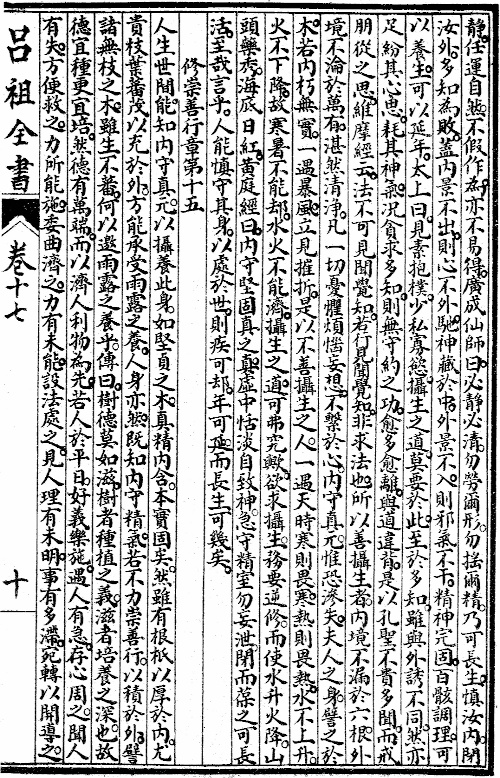 靜任運自然不假作為亦不易得廣成仙師曰必靜必清勿勞爾形勿搖爾精乃可長生慎汝內閉
汝外多知為敗蓋內景不出則心不外馳神藏於中外景不入則邪氣不干精神完固百骸調理可
以養生可以延年太上曰見素抱樸少私寡慾攝生之道莫要於此至於多知雖與外誘不同然亦
足紛其心思耗其神氣況貪求多知則無守約之功愈多愈離與道違背是以孔聖不貴多聞而戒
朋從之思維摩經云法不可見聞覺知若行見聞覺知非求法也所以善攝生者內境不漏於六根外
境不淪於萬有湛然清淨凡一切憂懼煩惱妄想不繫於心內守真元惟恐滲失夫人之身譬之於
木若內朽無實一遇暴風立見摧折是以不善攝生之人一遇天時寒則畏寒熱則畏熱水不上升
火不下降故寒暑不能却水火不能濟攝生之道可弗究歟欲求攝生務要逆修而使水升火降山
頭藥秀海底日紅黃庭經曰內守堅固真之真虛中恬淡自致神急守精室勿妄泄閉而葆之可長
活至哉言乎人能慎守其身以處於世則疾可却年可延而長生可幾矣
修崇善行章第十五
人生世間能知內守真元以攝養此身如堅貞之木真精內含本實固矣然雖有根柢以厚於內尤
貴枝葉蕃茂以充於外方能承受雨露之養人身亦然既知內守精氣若不力崇善行以積於外譬
諸無枝之木雖生不蕃何以邀雨露之養乎傳曰樹德莫如滋樹者種植之義滋者培養之深也故
德宜種更宜培然德有萬端而以濟人利物為先若人於平日好義樂施遇人有急存心周之聞人
有失方便救之力所能施委曲濟之力有未能設法處之見人理有未明事有多滯宛轉以開導之
呂祖全書
卷十七
十